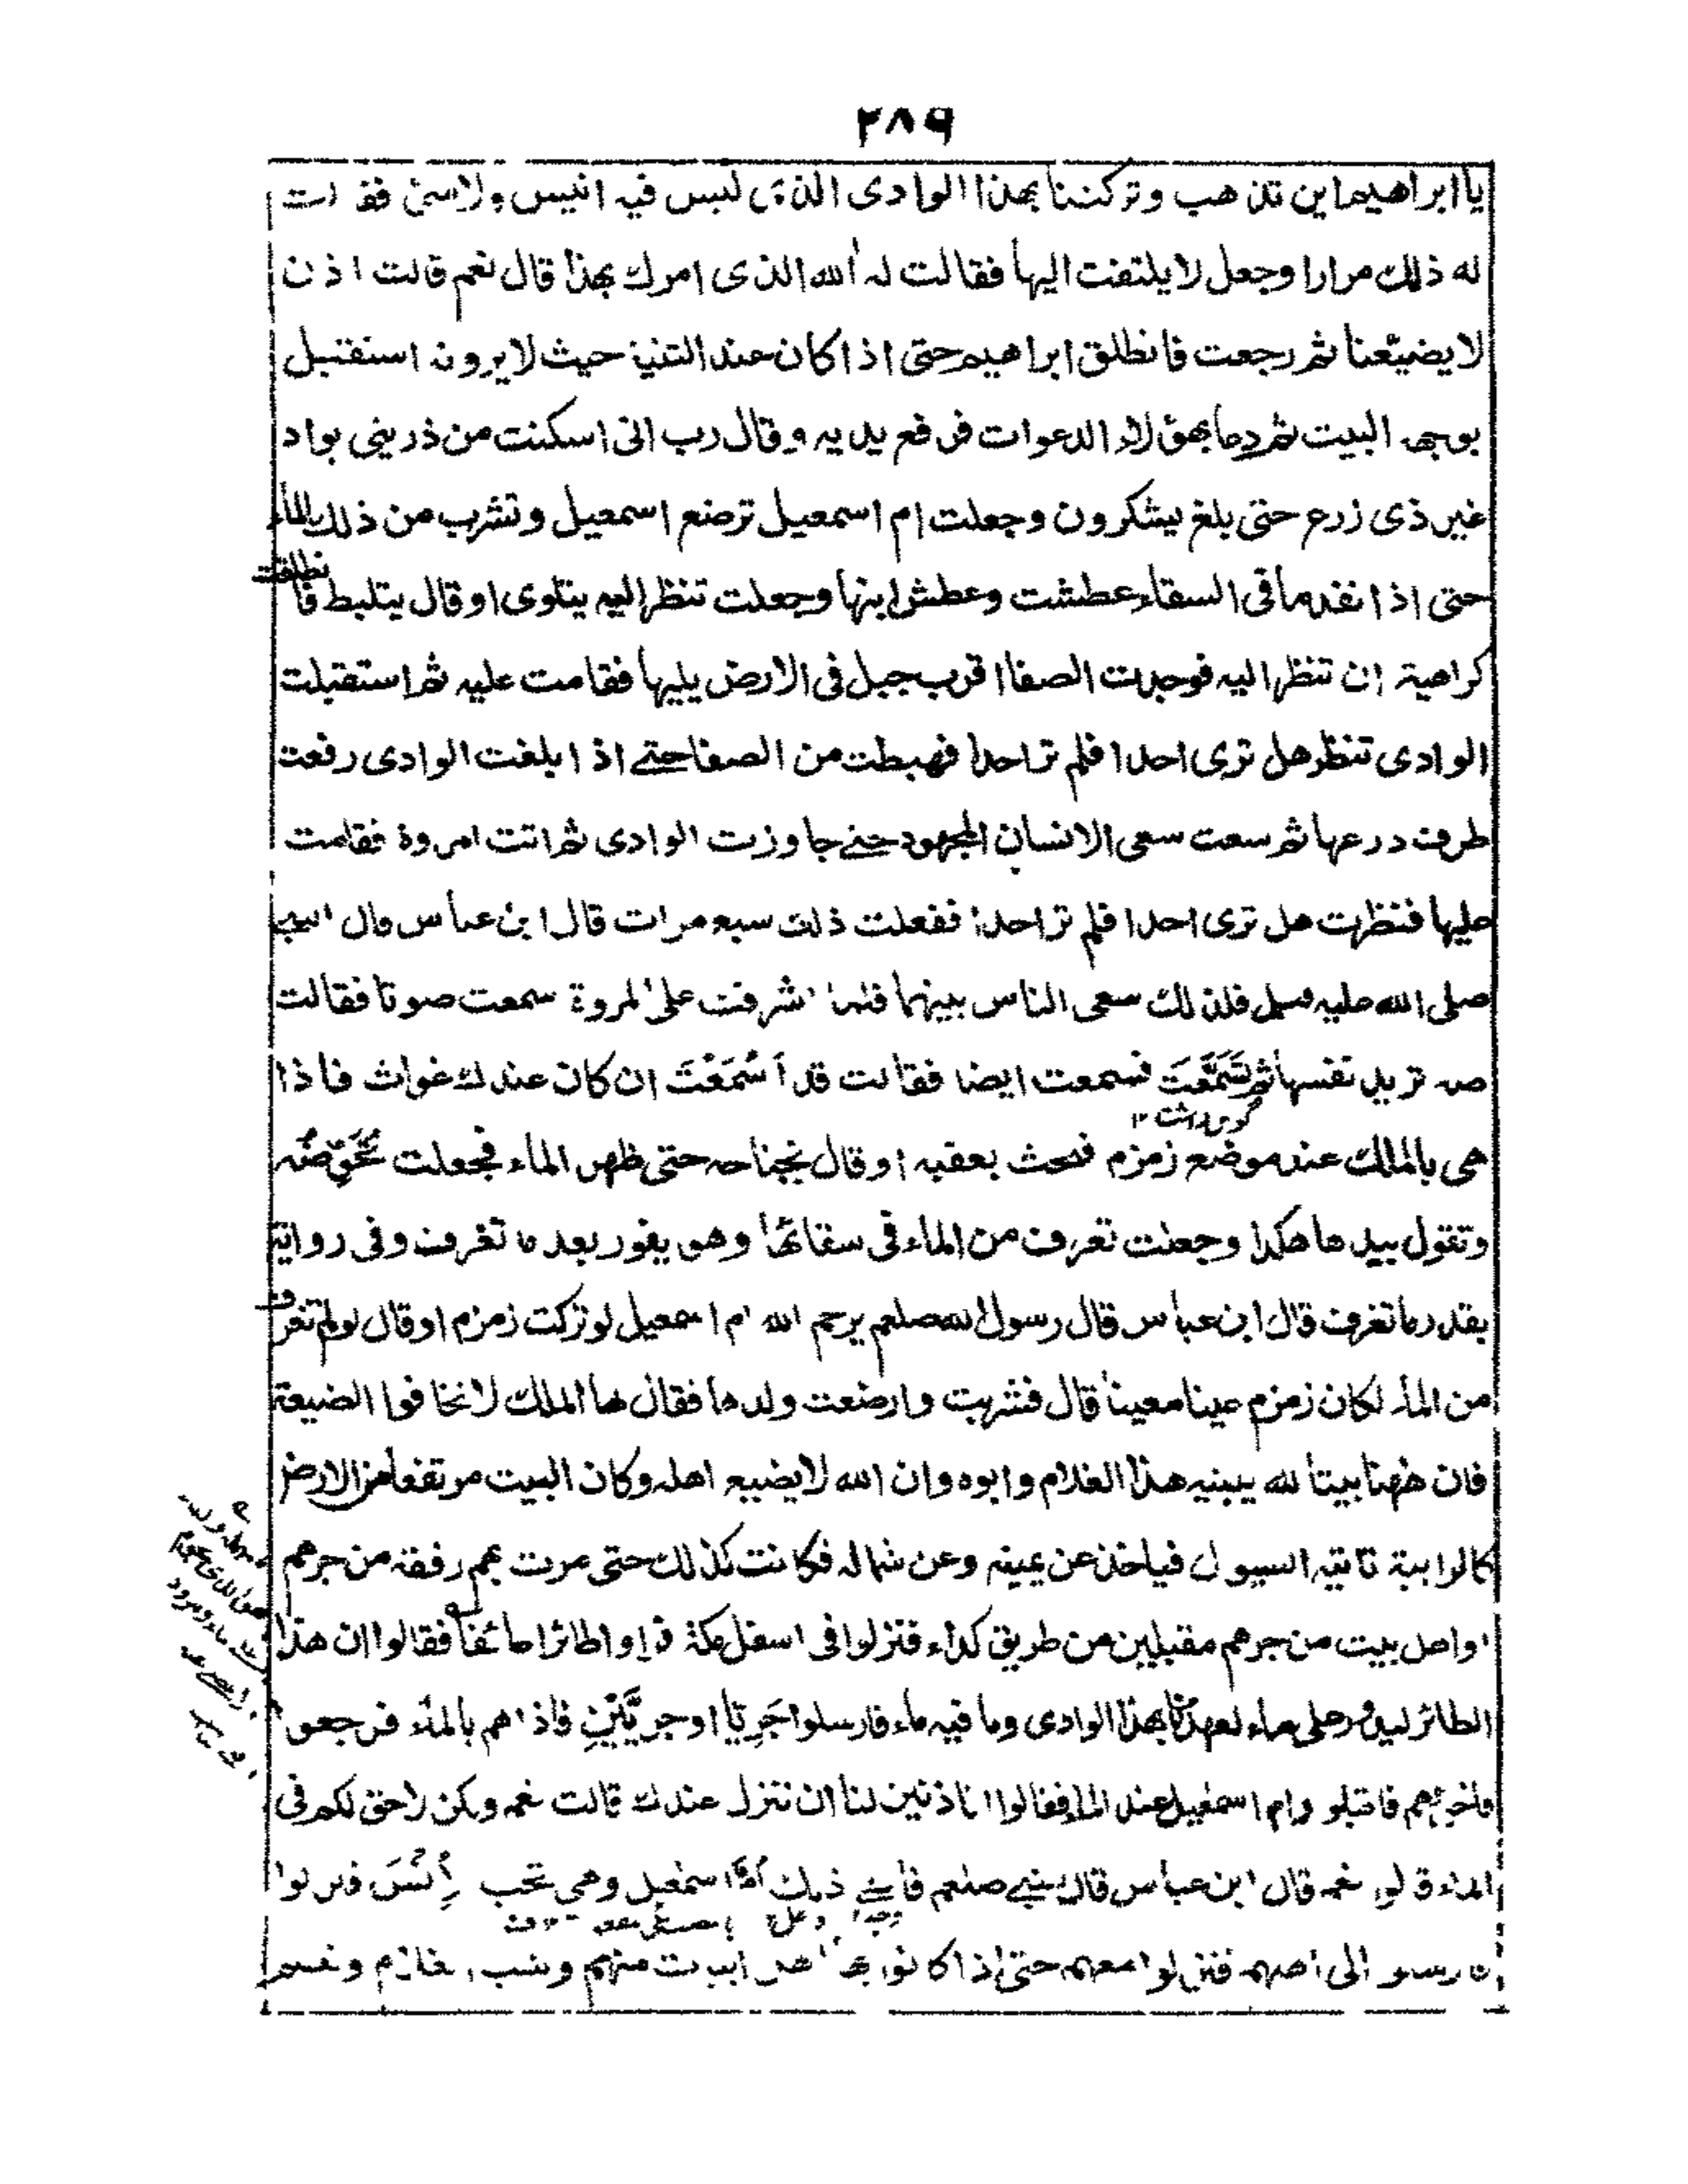 ۲۸۹
يا ابراهيم اين تذهب وتركتنا بهذا الوادى الذى ليس فيه انيس ولا شئ فقالت
له ذلك مرارا وجعل لا يلتفت اليها فقالت له آلله الذى امرك بهذا قال نعم قالت اذن
لا يضيّعنا ثم رجعت فانطلق ابراهيم حتى اذا كان عند الثنية حيث لا يرونه استقبل
بوجهه البيت ثم دعا بهؤلاء الدعوات فرفع يديه وقال رب انى اسكنت من ذريتى بواد
غير ذى زرع حتى بلغ يشكرون وجعلت ام اسمعيل ترضع اسمعيل وتشرب من ذلك الماء
حتى اذا نفد ما فى السقاء عطشت وعطش ابنها وجعلت تنظر اليه يتلوى او قال يتلبط فانطلقت
كراهية ان تنظر اليه فوجدت الصفا اقرب جبل فى الارض يليها فقامت عليه ثم استقبلت
الوادى تنظر هل ترى احدا فلم تر احدا فهبطت من الصفا حتى اذا بلغت الوادى رفعت
طرف درعها ثم سعت سعى الانسان المجهود حتى جاوزت الوادى ثم اتت المروة فقامت
عليها فنظرت هل ترى احدا فلم تر احدا ففعلت ذلك سبع مرات قال ابن عباس قال النبى
صلى الله عليه وسلم فلذلك سعى الناس بينهما فلما اشرفت على المروة سمعت صوتا فقالت
صه تريد نفسها ثم تَسَمَّعَتَ فسمعت ايضا فقالت قد أَسْمَعْتَ ان كان عندك غواث فاذا
هى بالملك عند موضع زمزم فبحث بعقبه او قال بجناحه حتى ظهر الماء فجعلت تُحَوِّضُه
وتقول بيدها هكذا وجعلت تغرف من الماء فى سقائها وهو يفور بعد ما تغرف وفى رواية
بقدر ما تغرف قال ابن عباس قال رسول الله صلعم يرحم الله ام اسمعيل لو تركت زمزم او قال لو لم تغرف
من الماء لكان زمزم عينا معينا قال فشربت وارضعت ولدها فقال لها الملك لا تخافوا الضيعة
فان ههنا بيتا لله يبنيه هذا الغلام وابوه وان الله لا يضيع اهله وكان البيت مرتفعا من الارض
كالرابية تاتيه السيول فياخذ عن يمينه وعن شماله فكانت كذلك حتى مرت بهم رفقة من جرهم
او اهل بيت من جرهم مقبلين من طريق كداء فنزلوا فى اسفل مكة فراوا طائرا عائفا فقالوا ان هذا
الطائر ليدور على ماء لعهدنا بهذا الوادى وما فيه ماء فارسلوا جَرِيّا او جريَّيْنِ فاذا هم بالماء فرجعوا
فاخبروهم فاقبلوا وام اسمعيل عند الماء فقالوا اتاذنين لنا ان ننزل عندك قالت نعم ولكن لا حق لكم فى
الماء قالوا نعم قال ابن عباس قال النبى صلعم فالفى ذلك ام اسمعيل وهى تحب الأنس فنزلوا
فارسلوا الى اهليهم فنزلوا معهم حتى اذا كانوا بها اهل ابيات منهم وشب الغلام وتعلم